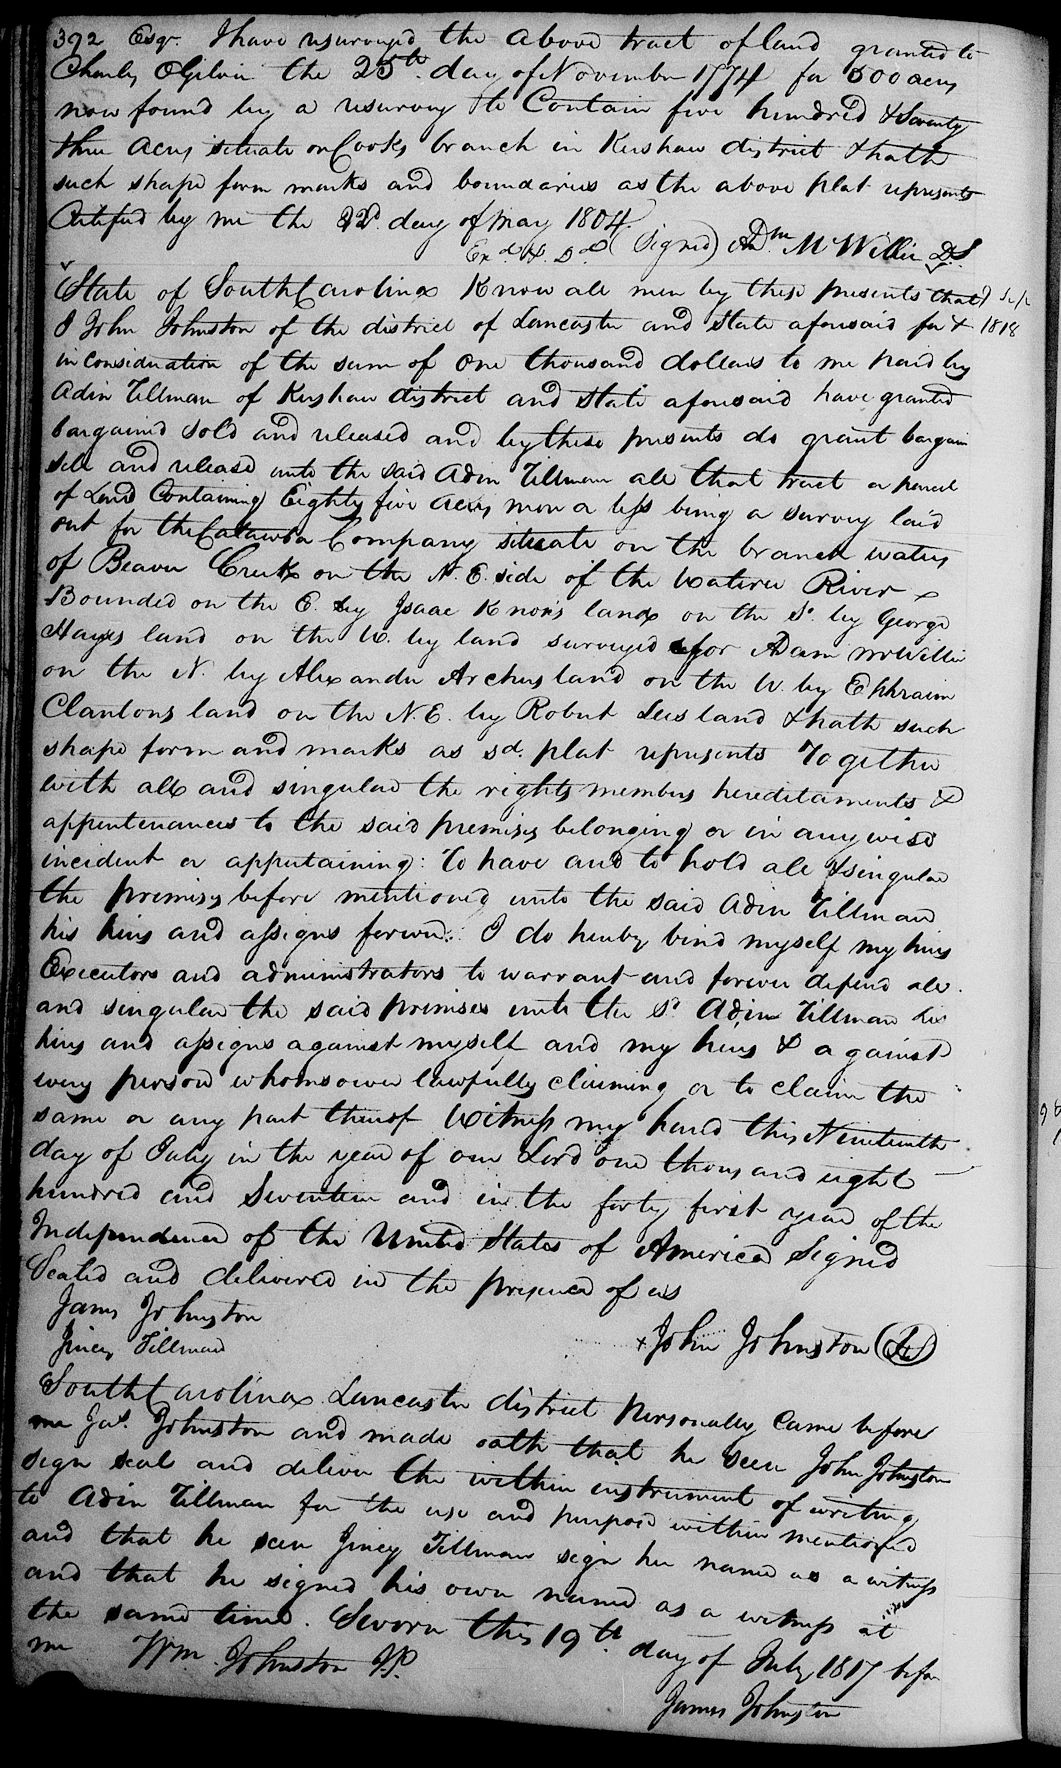 392 Esqr. I have resurveyed the above tract of land granted to
Charles Ogilvin the 25th. day of November 1774 for 500 acres
now found by a resurvey to Contain five hundred & Seventy
three acres situate on Cooks branch in Kershaw district & hath
such shape form marks and boundaries as the above plat represents
Certifed by me the 22d. day of may 1804.
(Signed) Adm McWillie D.S.
State of South Carolina Know all men by these presents that
I John Johnston of the district of Lancaster and State aforesaid for & 1818
in consideration of the sum of one thousand dollars to me paid by
Adin Tillman of Kershaw district and State aforesaid have granted
bargained Sold and released and by these presents do grant bargain
sell and release unto the said Adin Tillman all that tract or parcel
of Land Containing Eighty five acres more or less being a survey laid
out for the Catawba Company situate on the branch waters
of Beaver Creek on the N. E. side of the Wateree River
Bounded on the E. by Isaac Knox's land on the So. by George
Hayes land on the W. by land surveyed for Adam McWillie
on the N. by Alexander Archers land on the W. by Ephraim
Clantons land on the N.E. by Robert Lees land & hath such
shape form and marks as sd. plat represents Together
with all and singular the rights members hereditaments &
appurtenances to the said premises belonging or in any wise
incident or appertaining: To have and to hold all & singular
the premises before mentioned unto the said Adin Tillman
his heirs and assigns forever: I do hereby bind myself my heirs
Executors and administrators to warrant and forever defend all
and singular the said premises unto the sd. Adin Tillman his
heirs and assigns against myself and my heirs & against
every person whomsoever lawfully claiming or to claim the
same or any part thereof Witness my hand this Nineteenth
day of July in the year of our Lord one thousand eight
hundred and Seventeen and in the forty first year of the
Independence of the United States of America Signed
Sealed and delivered in the presence of us
James Johnston
Jincy Tillman
John Johnston (LS)
South Carolina Lancaster district Personally Came before
me Jas. Johnston and made oath that he seen John Johnston
sign seal and deliver the within instrument of writing
to Adin Tillman for the use and purpose within mentioned
and that he seen Jincy Tillman sign her name as a witness
and that he signed his own name as a witness at
the same time. Sworn this 19th. day of July 1817 before
me Wm. Johnston JP.
James Johnston